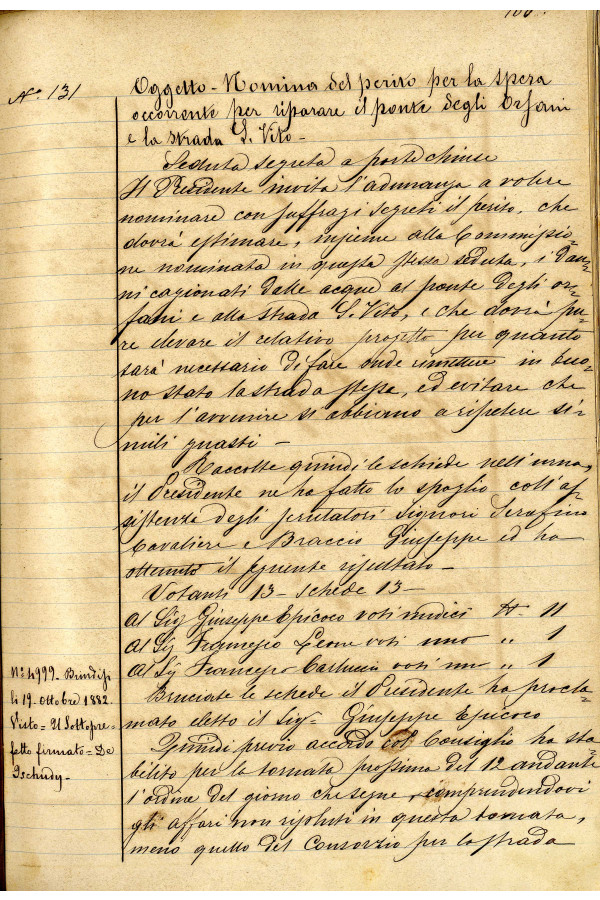 N.° 131
Oggetto - Nomina del perito per la spesa
occorrente per riparare il ponte degli Orfani
e la strada S. Vito -
Seduta segreta a porte chiuse
Il Presidente invita l'adunanza a volere
nominare con suffragi segreti il perito, che
dovrà estimare, insieme alla Commissio=
ne nominata in questa stessa seduta, i dan=
ni cagionati dalle acque al ponte degli or=
fani e alla strada S. Vito, e che dovrà pu=
re elevare il relativo progetto per quanto
sarà necessario di fare onde rimettere in buo=
no stato la strada stessa, ed evitare che
per l'avvenire si abbiano a ripetere si=
mili guasti -
Raccolte quindi le schede nell'urna,
il Presidente ne ha fatto lo spoglio coll'as=
sistenza degli scrutatori Signori Serafino
Cavaliere e Braccio Giuseppe ed ha
ottenuto il seguente risultato -
Votanti 13 - schede 13 -
Al Sig. Giuseppe Epicoco voti undici N. 11
Al Sig. Francesco Leone voti uno " 1
Al Sig. Francesco Carluccio voti uno " 1
Bruciate le schede il Presidente ha procla=
mato eletto il Sig. Giuseppe Epicoco
Quindi previo accordo col Consiglio ha sta=
bilito per la tornata prossima del 12 andante
l'ordine del giorno che segue, comprendendovi
gli affari non risoluti in questa tornata,
meno quello del Consorzio per la strada
N.° 4999 - Brindisi
li 19 - Ottobre 1882 -
Visto = Il Sottopre=
fetto firmato = De
Tschudy -